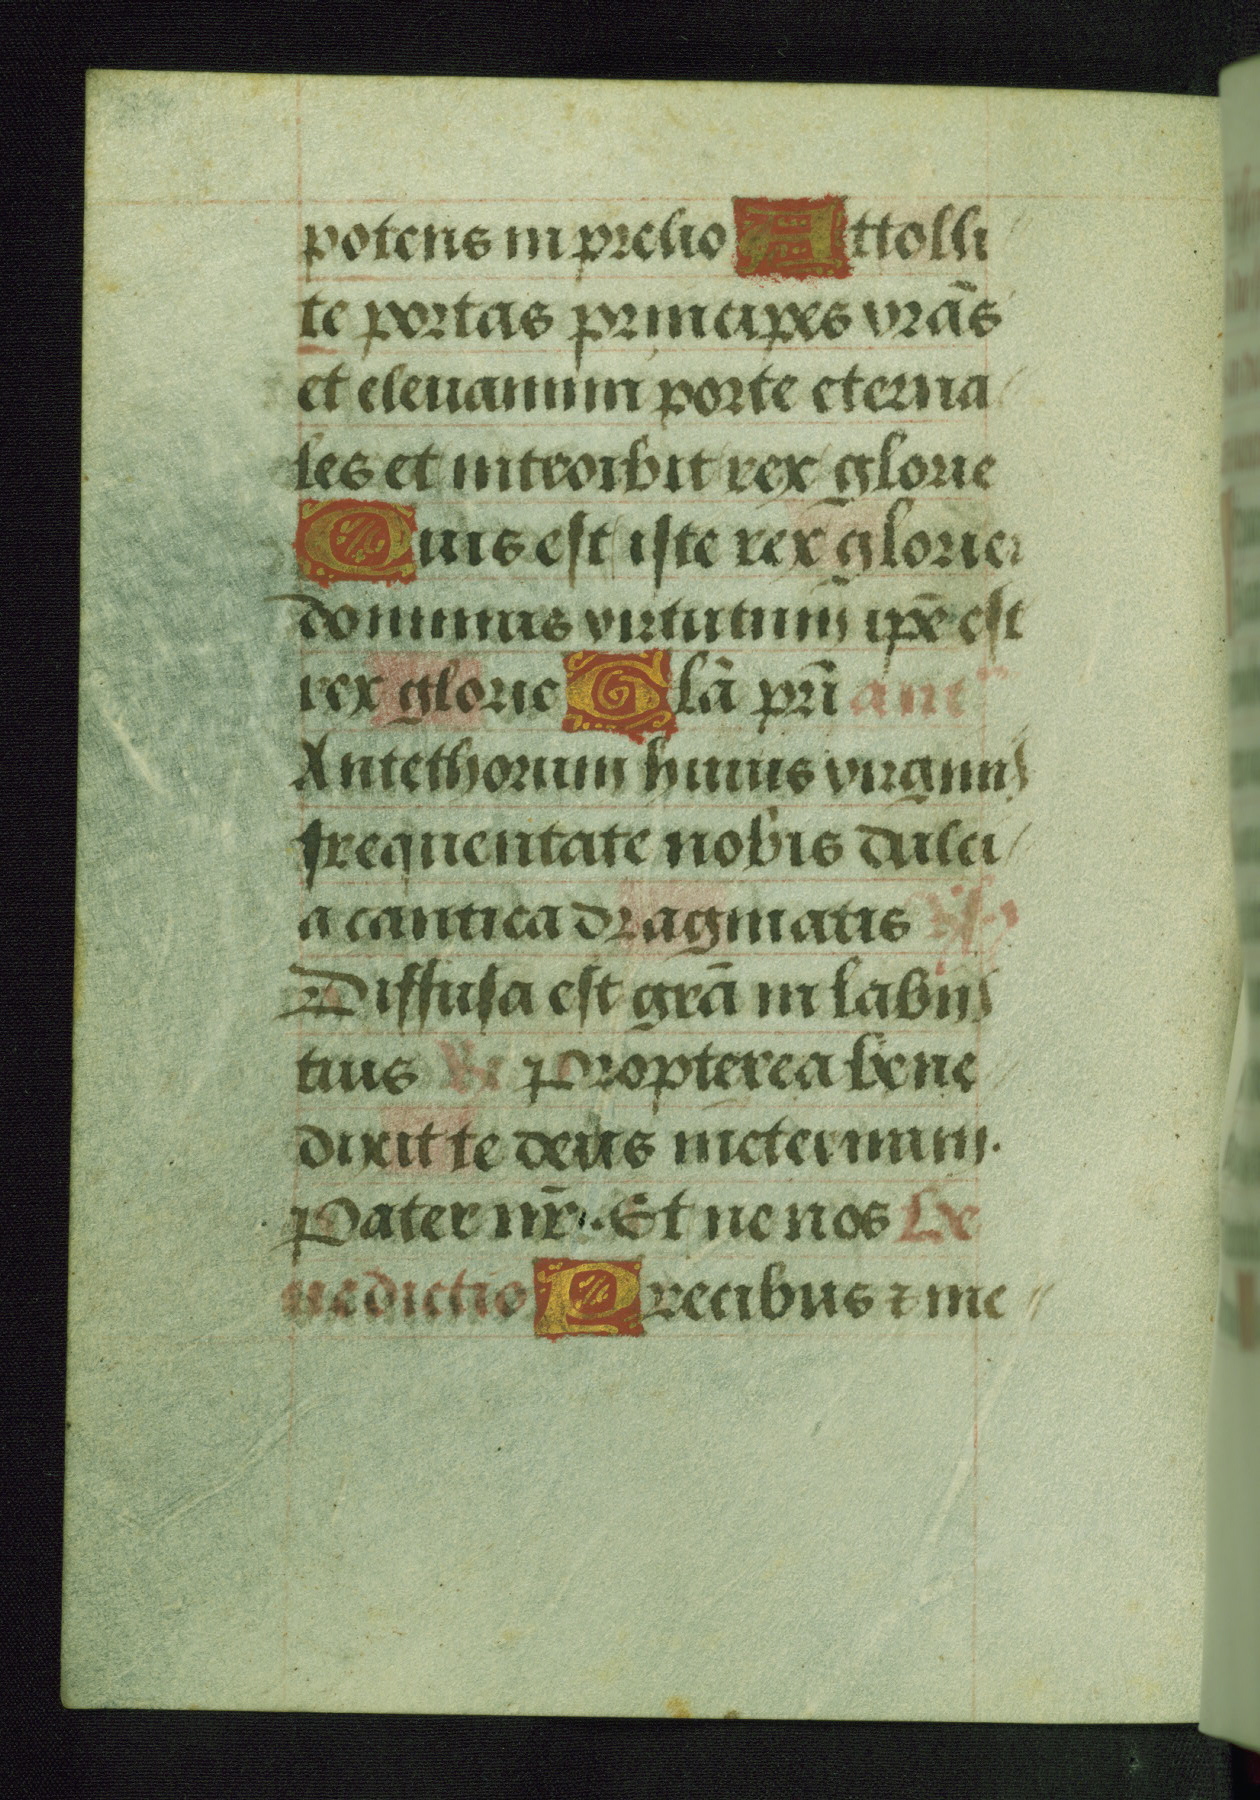 potens in prelio Attolli
te portas principes vrãs
et eleuamini porte eterna
les et introibit rex glorie
Quis est iste rex glorie
dominus virtutum ipẽ est
rex glorie Glã prĩ ant
Ante thorum huius virginis
frequentate nobis dulci
a cantica dragmatis
Diffusa est grã in labijs
tuis R Propterea bene
dixit te deus in eternum.
Pater nr̃. Et ne nos Be
nedictio Precibus ⁊ me